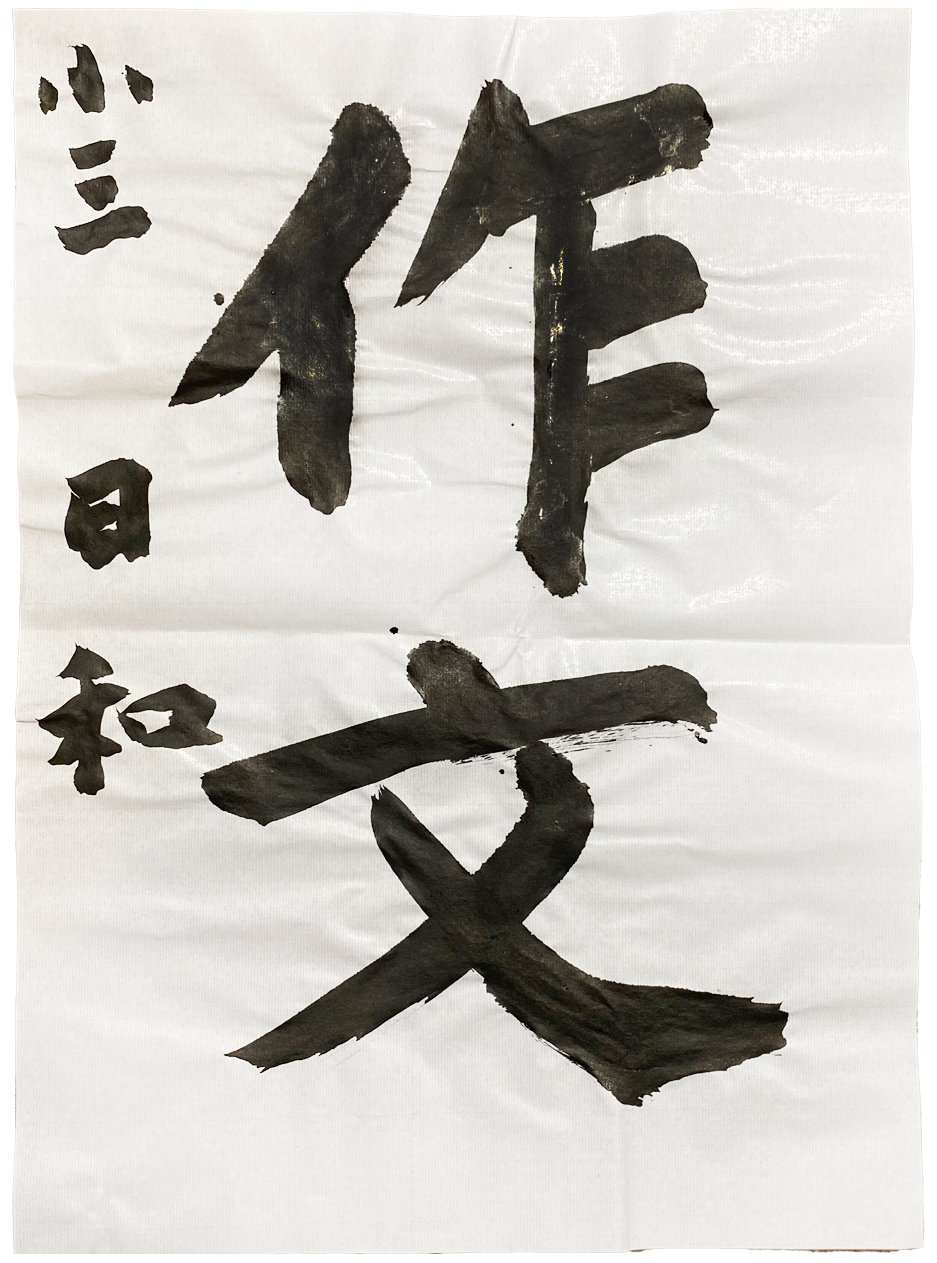 作文
小三 日和